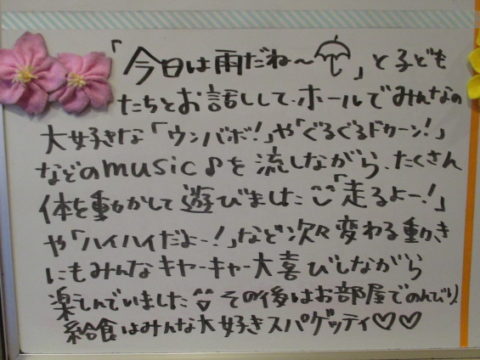 「今日は雨だね〜☂」と子ども
たちとお話しして、ホールでみんなの
大好きな「ウンバボ!」や「ぐるぐるドカーン!」
などのmusic♪を流しながら、たくさん
体を動かして遊びました 「走るよー!」
や「ハイハイだよー!」など次々変わる動き
にもみんなキャーキャー大喜びしながら
楽しんでいました その後はお部屋でのんびり♪
給食はみんな大好きスパゲッティ♡♡